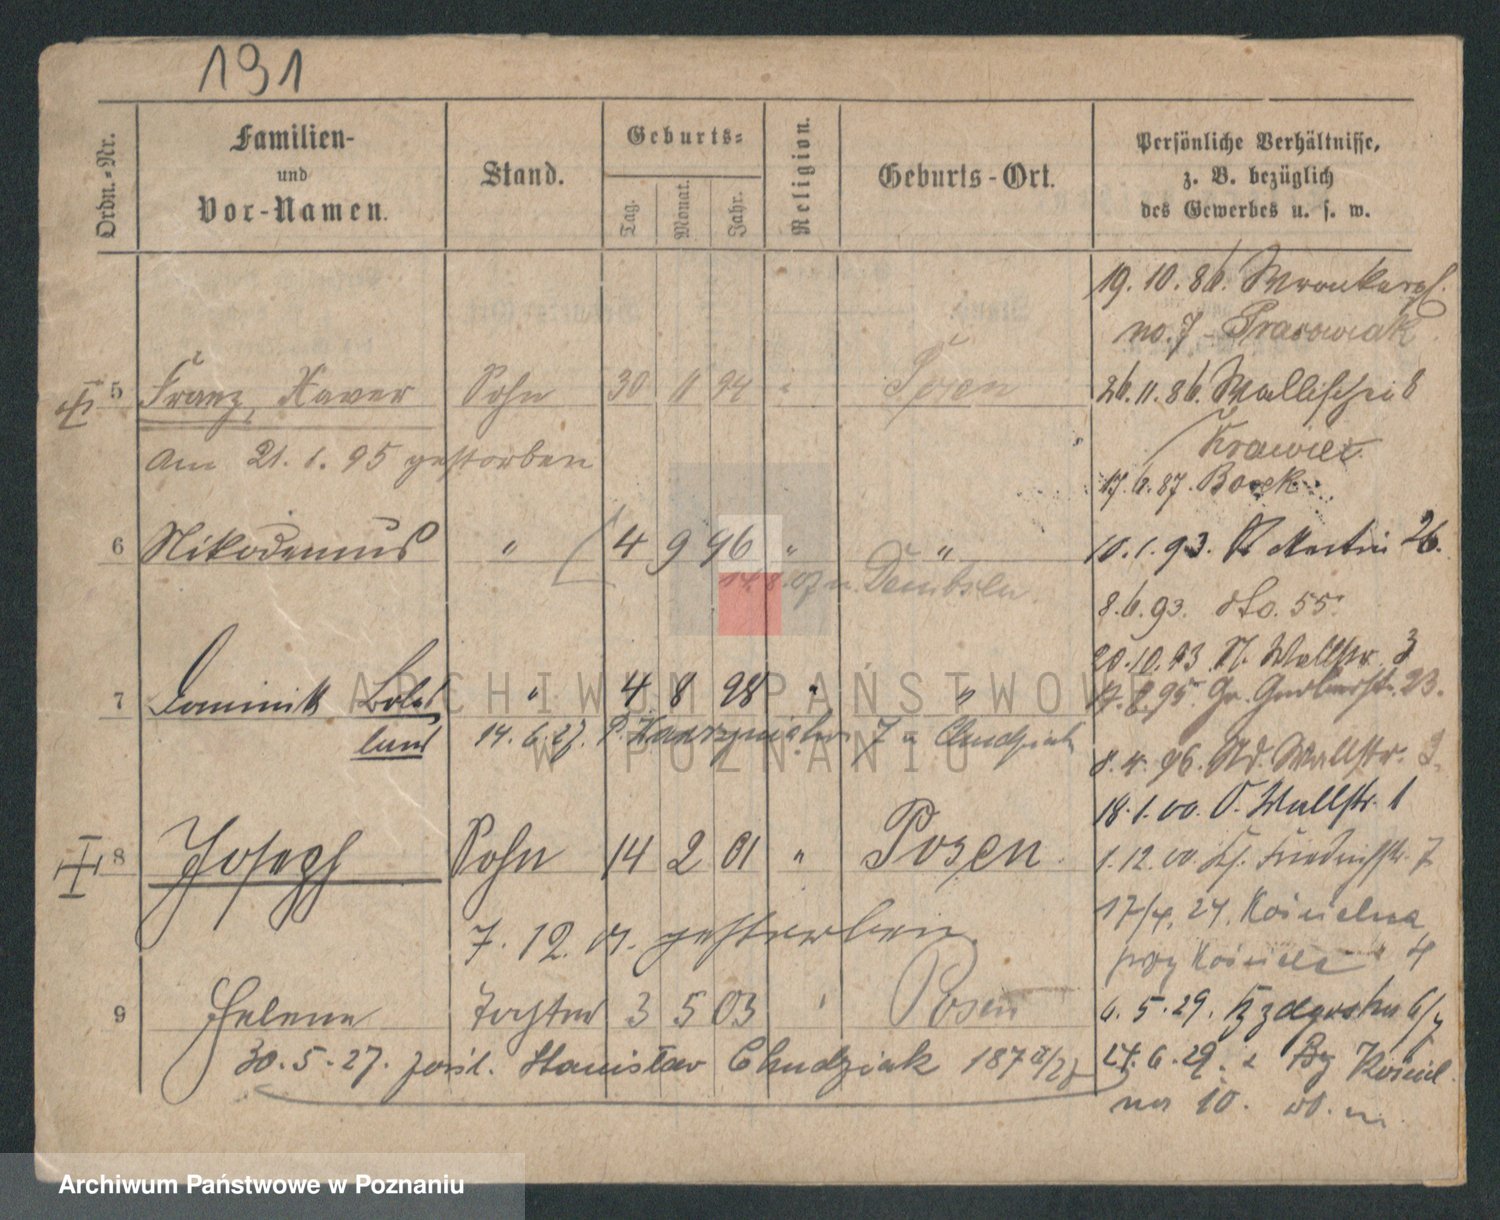 191
Ordn.-Nr.
Familien-
und
Vor-Namen.
Stand.
Geburts-
Tag.
Monat.
Jahr.
Religion.
Geburts-Ort.
Persönliche Verhältnisse,
z. B. bezüglich
des Gewerbes u. s. w.
19. 10. 86. Wronkerpl.
no. 7
5 Franz Xaver Sohn 30 11 94 " Posen
26. 11. 86. Wallischei 8
am 21. 1. 95 gestorben
Krawiec
17. 6. 87. Boek
6 Nikodemus " 4 9 96 " "
10. 1. 93. St Martin 26.
8. 6. 93. dto. 55.
20. 10. 93. N. Wallstr. 3
7 Dominik Boles " 4 8 98 " "
95. Gr. Gerberstr. 23.
laus 14. 6. 27. 7 u Chudziak
8. 4. 96. Nd. Wallstr. 3.
18. 1. 00. O. Wallstr. 1
8 Joseph Sohn 14 2 01 " Posen
1. 12. 00. Friedrichstr. 7
7. 12. 01. gestorben.
17/4. 24. Kościelna
przy Kościele 4
9 Helene Tochter 3 5 03 " Posen
6. 5. 29.
30. 5. 27. Stanisław Chudziak 187
24. 6. 29. z
no 10.
ARCHIWUM PAŃSTWOWE
W POZNANIU
Archiwum Państwowe w Poznaniu